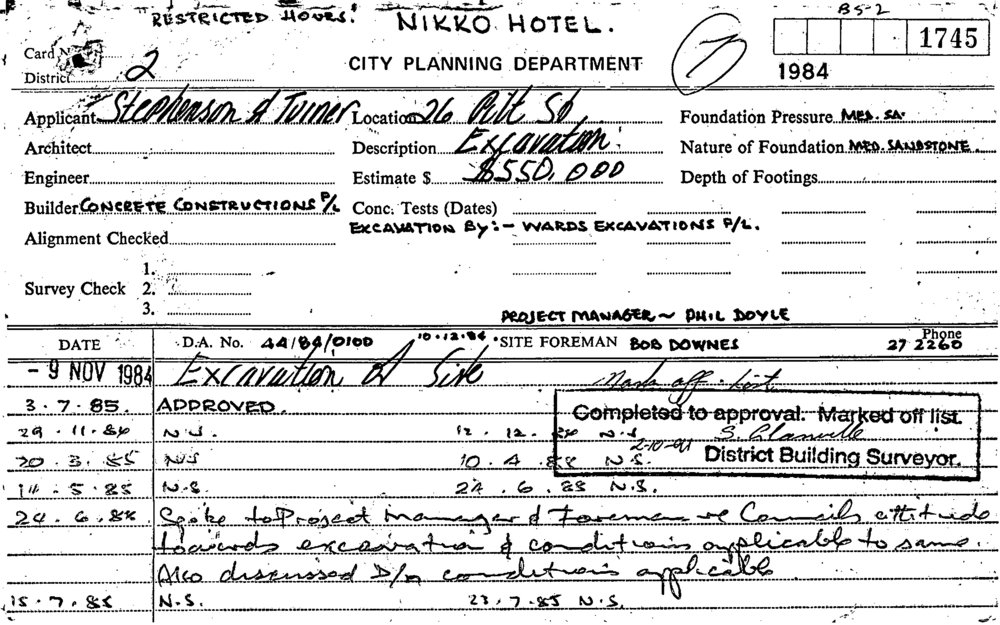 RESTRICTED HOURS! NIKKO HOTEL. BS-2
Card No
1745
District 2 CITY PLANNING DEPARTMENT 7 1984
Applicant Stephenson & Turner Location 26 Pitt St Foundation Pressure MED. SA.
Architect Description Excavation. Nature of Foundation MED. SANDSTONE.
Engineer Estimate $ $550,000 Depth of Footings
Builder CONCRETE CONSTRUCTIONS P/L Conc. Tests (Dates)
EXCAVATION By:- WARDS EXCAVATIONS P/L.
Alignment Checked
1.
Survey Check 2.
3.
PROJECT MANAGER ~ PHIL DOYLE
DATE D.A. No. 44/84/0100 10.12.84 SITE FOREMAN BOB DOWNES Phone 27 2260
- 9 NOV 1984 Excavation of Site Mark off list
3.7.85. APPROVED. Completed to approval. Marked off list.
29.11.84 N.S. 12.12.84 N.S. S. Glanville
20.3.85 N.S 10.4.85 N.S. 2-10-91 District Building Surveyor.
14.5.85 N.S. 24.6.85 N.S.
24.6.85. Spoke to Project Manager & Foreman re Councils attitude
towards excavation & conditions applicable to same.
Also discussed D/A conditions applicable
15.7.85 N.S. 23.7.85 N.S.